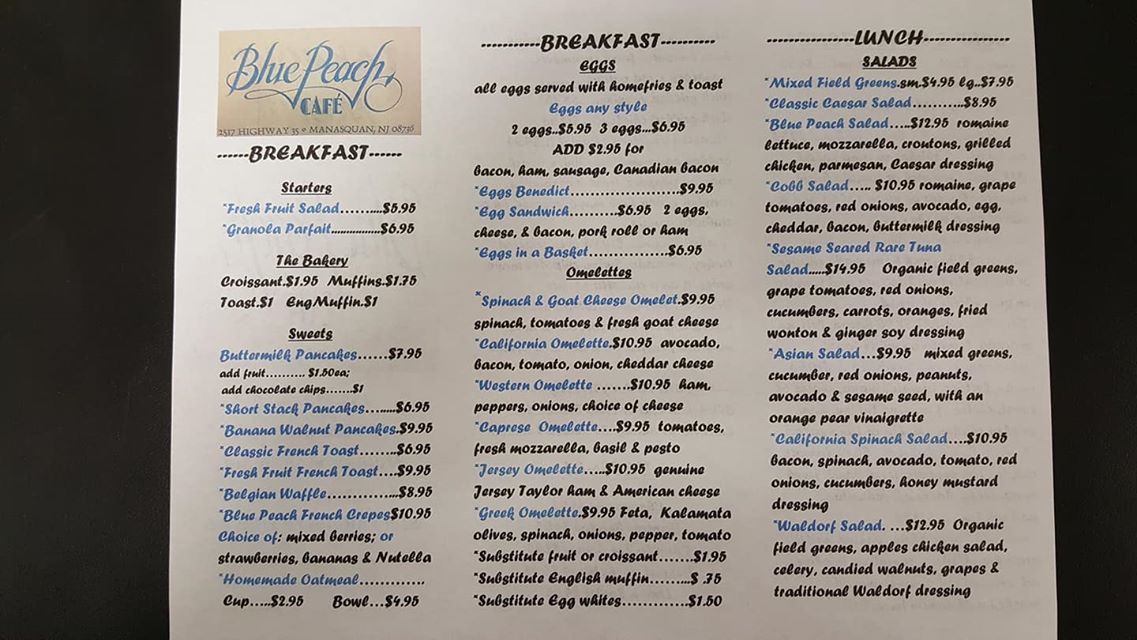 Blue Peach
CAFÉ
2517 HIGHWAY 35 • MANASQUAN, NJ 08736
------BREAKFAST------
Starters
*Fresh Fruit Salad..........$5.95
*Granola Parfait................$6.95
The Bakery
Croissant.$1.95 Muffins.$1.75
Toast.$1 Eng Muffin.$1
Sweets
Buttermilk Pancakes......$7.95
add fruit.......... $1.50ea;
add chocolate chips.......$1
*Short Stack Pancakes........$6.95
*Banana Walnut Pancakes.$9.95
*Classic French Toast.......$6.95
*Fresh Fruit French Toast....$9.95
*Belgian Waffle...............$8.95
*Blue Peach French Crepes$10.95
Choice of: mixed berries; or
strawberries, bananas & Nutella
*Homemade Oatmeal.............
Cup.....$2.95 Bowl...$4.95
-----------BREAKFAST----------
EGGS
all eggs served with homefries & toast
Eggs any style
2 eggs..$5.95 3 eggs...$6.95
ADD $2.95 for
bacon, ham, sausage, Canadian bacon
*Eggs Benedict........................$9.95
*Egg Sandwich..........$6.95 2 eggs,
cheese, & bacon, pork roll or ham
*Eggs in a Basket.................$6.95
Omelettes
*Spinach & Goat Cheese Omelet.$9.95
spinach, tomatoes & fresh goat cheese
*California Omelette.$10.95 avocado,
bacon, tomato, onion, cheddar cheese
*Western Omelette .......$10.95 ham,
peppers, onions, choice of cheese
*Caprese Omelette....$9.95 tomatoes,
fresh mozzarella, basil & pesto
*Jersey Omelette.....$10.95 genuine
Jersey Taylor ham & American cheese
*Greek Omelette.$9.95 Feta, Kalamata
olives, spinach, onions, pepper, tomato
*Substitute fruit or croissant.......$1.95
*Substitute English muffin........$ .75
*Substitute Egg whites.............$1.50
----------------LUNCH----------------
SALADS
*Mixed Field Greens.sm.$4.95 lg..$7.95
*Classic Caesar Salad..........$8.95
*Blue Peach Salad.....$12.95 romaine
lettuce, mozzarella, croutons, grilled
chicken, parmesan, Caesar dressing
*Cobb Salad..... $10.95 romaine, grape
tomatoes, red onions, avocado, egg,
cheddar, bacon, buttermilk dressing
*Sesame Seared Rare Tuna
Salad.....$14.95 Organic field greens,
grape tomatoes, red onions,
cucumbers, carrots, oranges, fried
wonton & ginger soy dressing
*Asian Salad...$9.95 mixed greens,
cucumber, red onions, peanuts,
avocado & sesame seed, with an
orange pear vinaigrette
*California Spinach Salad....$10.95
bacon, spinach, avocado, tomato, red
onions, cucumbers, honey mustard
dressing
*Waldorf Salad. ...$12.95 Organic
field greens, apples chicken salad,
celery, candied walnuts, grapes &
traditional Waldorf dressing